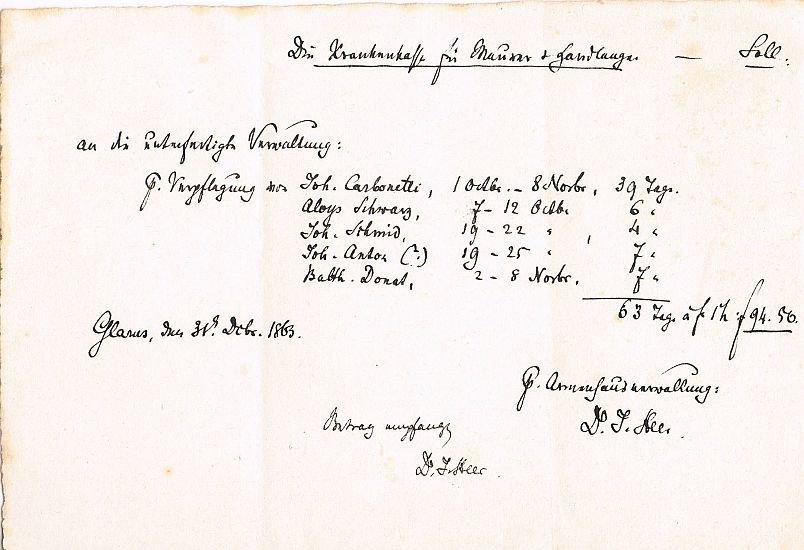 Die Krankenkasse für Maurer & Handlanger — Soll.
an die unterfertigte Verwaltung:
p. Verpflegung von Joh. Carbonetti, 1 Octbr. – 8 Novbr, 39 Tage.
Aloys Schwarz, 7 – 12 Octbr 6 "
Joh. Schmid, 19 – 22 " , 4 "
Joh. Anton (?) 19 – 25 " 7 "
Balth. Donat, 2 – 8 Novbr, 7 "
63 Tage à f. 1 ½ : f 94. 50.
Glarus, den 31t. Dcbr. 1863.
p. Armenhausverwaltung:
Dr. J. Heer.
Betrag empfangen
Dr. J. Heer